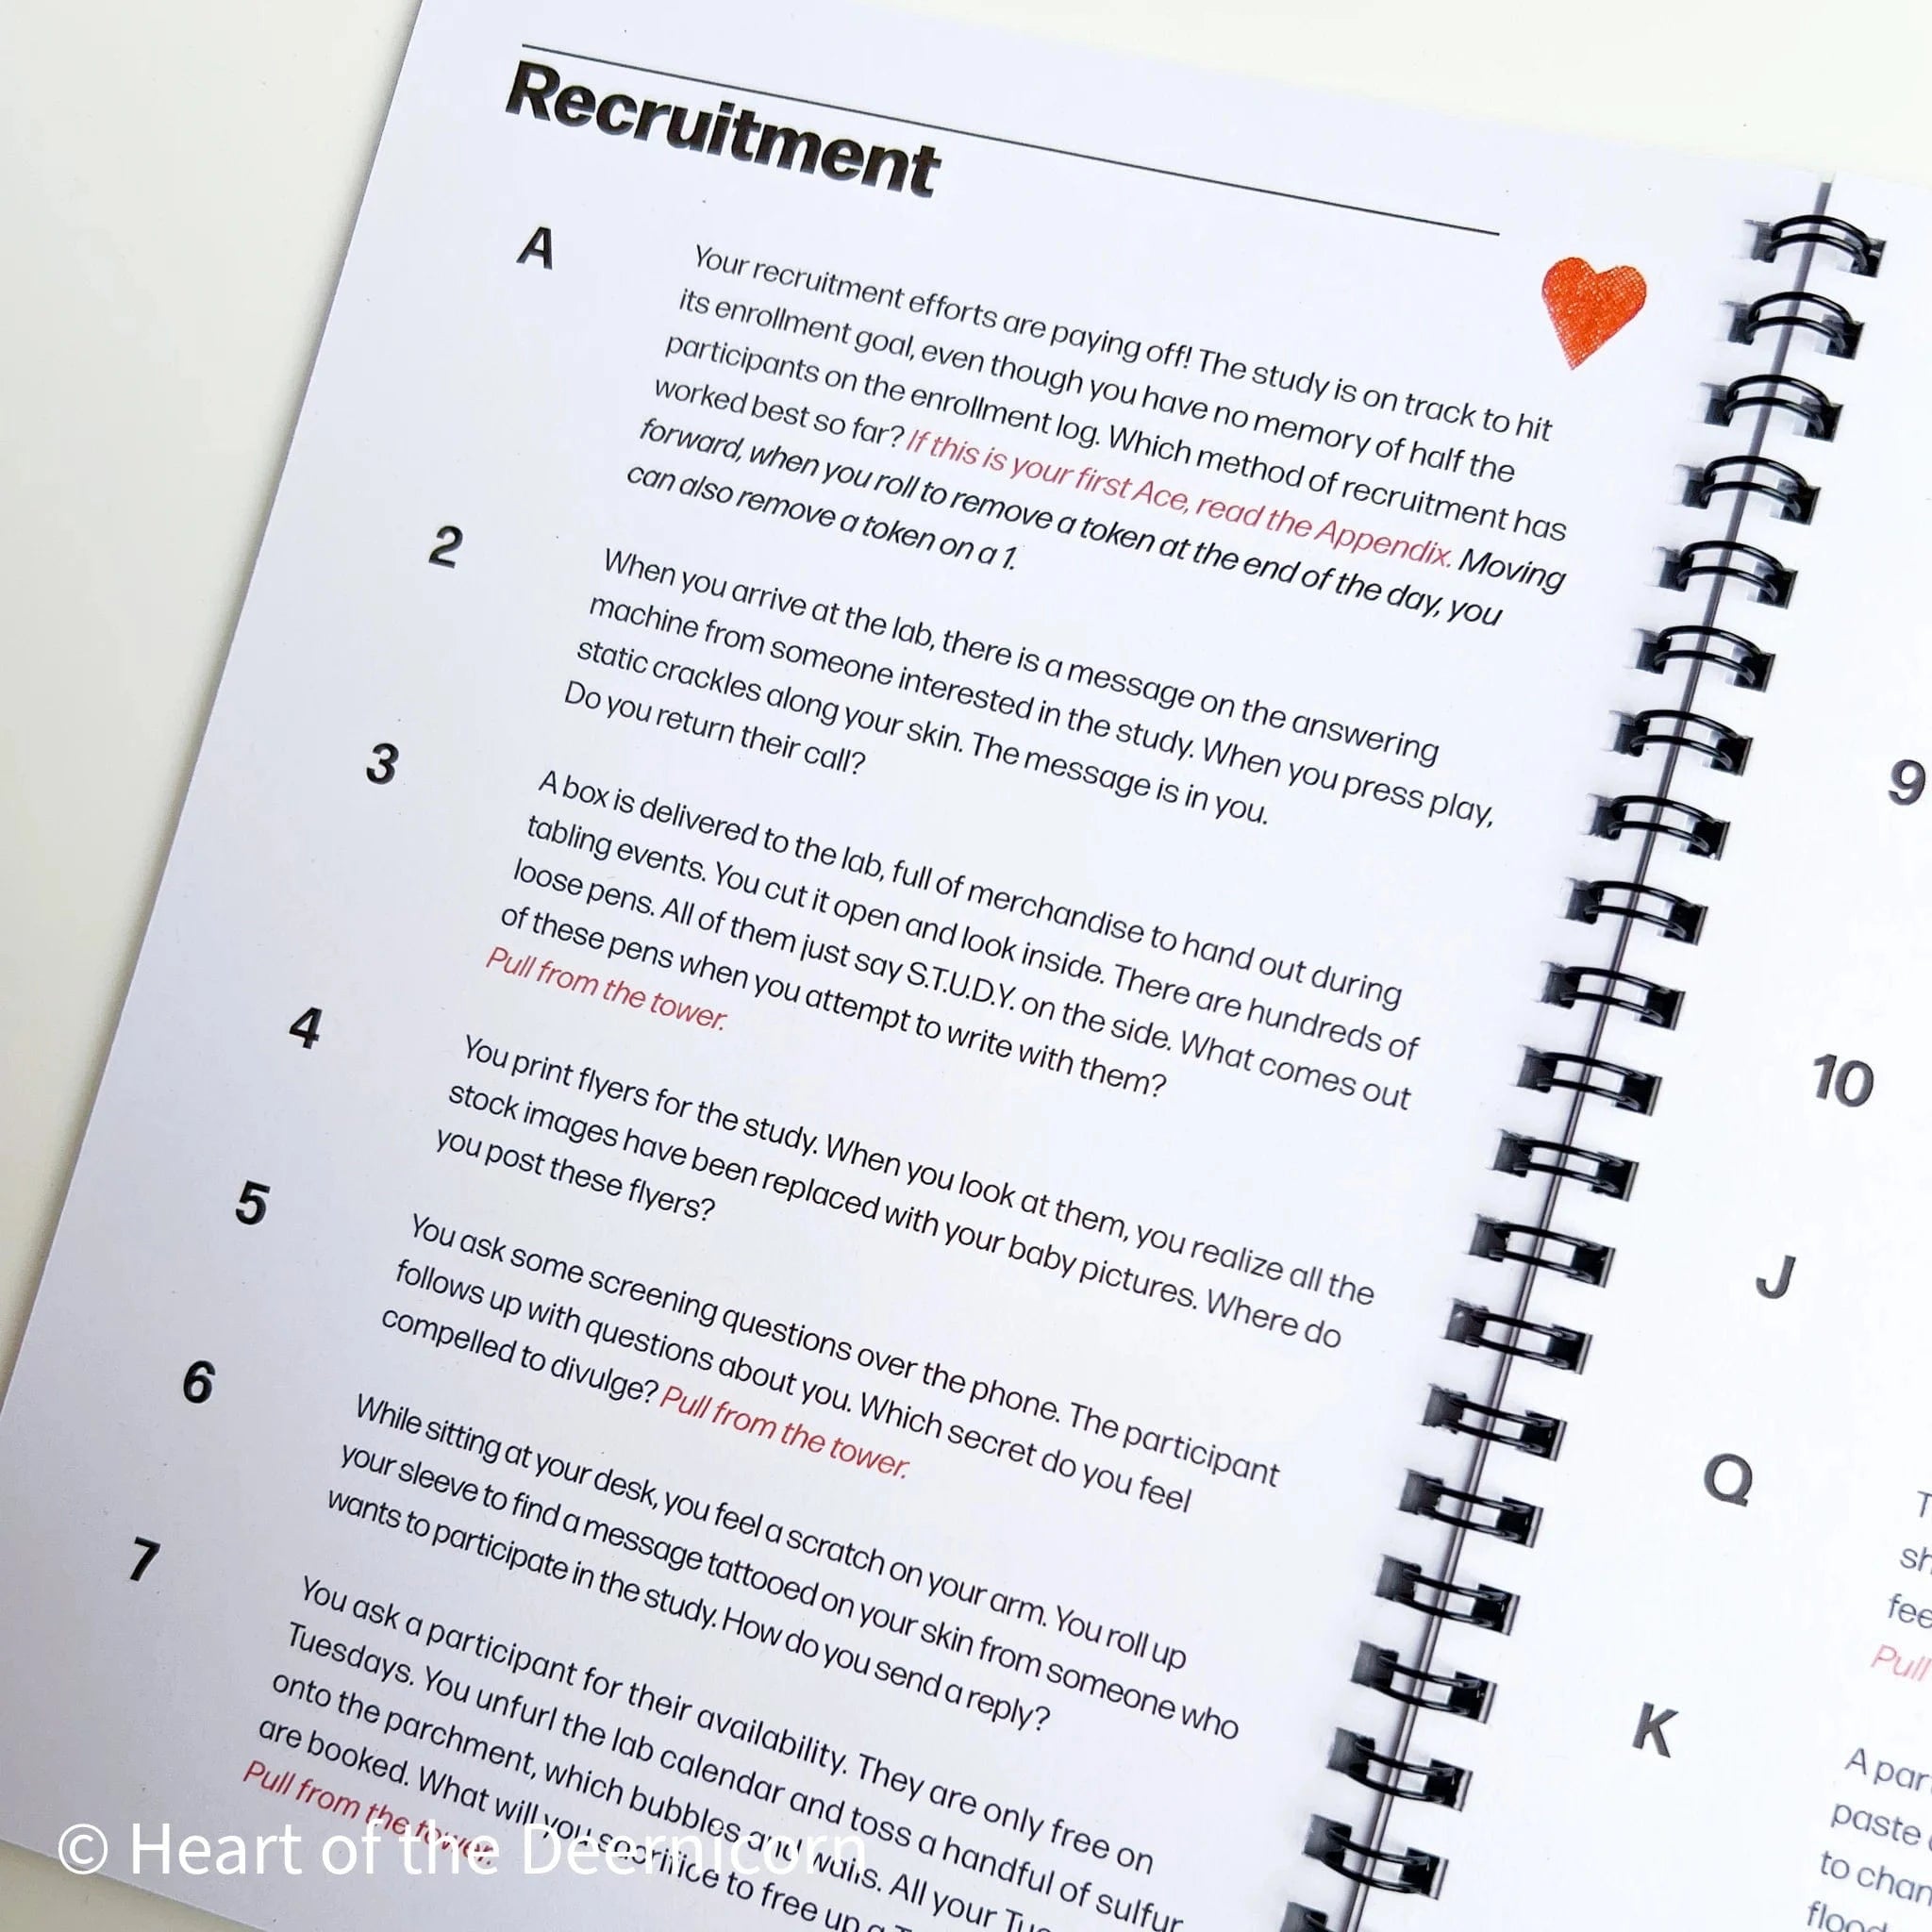 Recruitment
A
Your recruitment efforts are paying off! The study is on track to hit
its enrollment goal, even though you have no memory of half the
participants on the enrollment log. Which method of recruitment has
worked best so far? If this is your first Ace, read the Appendix. Moving
forward, when you roll to remove a token at the end of the day, you
can also remove a token on a 1.
2
When you arrive at the lab, there is a message on the answering
machine from someone interested in the study. When you press play,
static crackles along your skin. The message is in you.
Do you return their call?
3
A box is delivered to the lab, full of merchandise to hand out during
tabling events. You cut it open and look inside. There are hundreds of
loose pens. All of them just say S.T.U.D.Y. on the side. What comes out
of these pens when you attempt to write with them?
Pull from the tower.
4
You print flyers for the study. When you look at them, you realize all the
stock images have been replaced with your baby pictures. Where do
you post these flyers?
5
You ask some screening questions over the phone. The participant
follows up with questions about you. Which secret do you feel
compelled to divulge? Pull from the tower.
6
While sitting at your desk, you feel a scratch on your arm. You roll up
your sleeve to find a message tattooed on your skin from someone who
wants to participate in the study. How do you send a reply?
7
You ask a participant for their availability. They are only free on
Tuesdays. You unfurl the lab calendar and toss a handful of sulfur
onto the parchment, which bubbles and wails. All your
are booked. What will you sacrifice to free up a
Pull from the tower.
9
10
J
Q
Pull
K
A
paste
to
© Heart of the Deernicorn